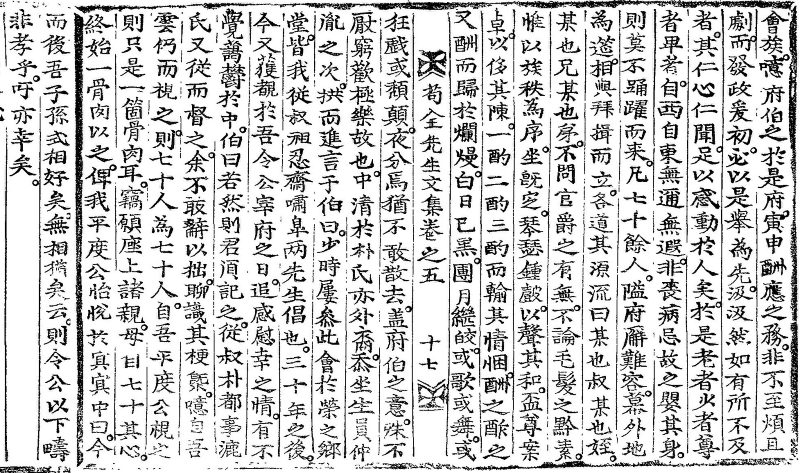 會族噫府伯之於是府寅申酬應之務非不至煩且
劇而發政爰初必以是舉為先汲汲然如有所不及
者其仁心仁聞足以感動於人矣於是老者少者尊
者卑者自西自東無邇無遐非喪病忌故之嬰其身
則莫不踊躍而来凡七十餘人隘府廨難容幕外地
為筵相與拜揖而立各道其源流曰某也叔某也姪
某也兄某也弟不問官爵之有無不論毛髮之黔素
惟以族秩為序坐旣定琴瑟鍾鼓以聲其和盃尊案
卓以侈其陳一酌二酌三酌而輸其情悃酬之酢之
又酬而歸於爛熳白日已黑團月繼皎或歌或舞或
苟全先生文集卷之五 十七
狂戱或頹顛夜分焉猶不敢散去盖府伯之意殊不
厭窮歡極樂故也中清於朴氏亦外裔忝坐生員仲
胤之次拱而進言于伯曰少時屢叅此會於榮之鄉
堂皆我從叔祖忍齋嘯皐两先生倡也三十年之後
今又獲覩於吾令公宰府之日追感慰幸之情有不
覺蔼鬱於中伯曰若然則君湏記之從叔朴都事漉
氏又從而督之余不敢辭以拙聊識其梗槩噫自吾
雲仍而視之則七十人為七十人自吾平度公視之
則只是一箇骨肉耳竊願座上諸親毋曰七十其心
終始一骨肉以之俾我平度公怡悅於冥冥中曰今
而後吾子孫式相好矣無相猶矣云則令公以下疇
非孝乎吁亦幸矣